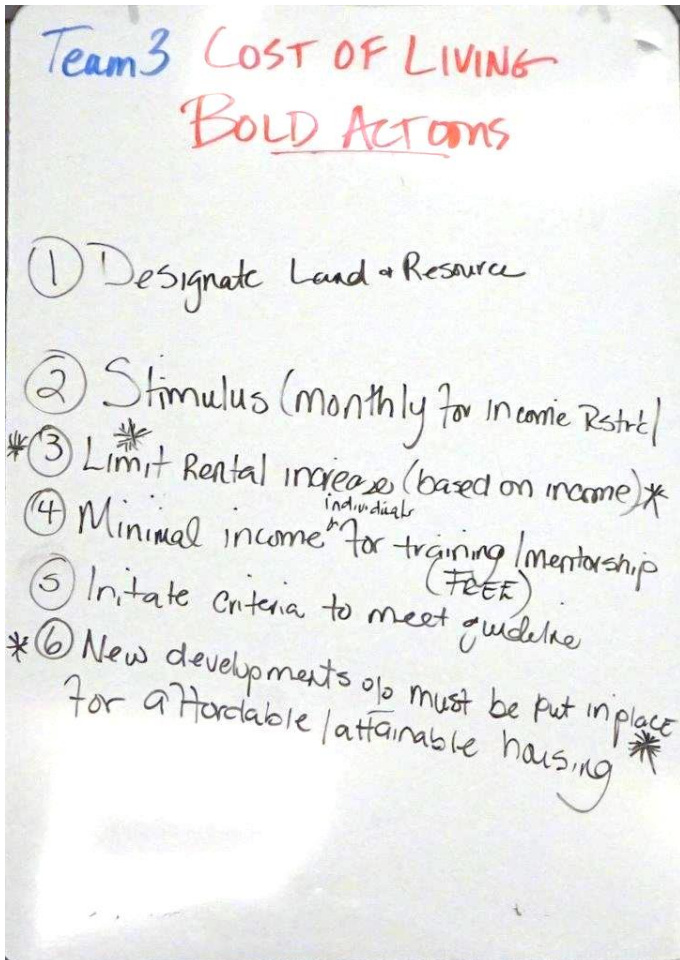 Team 3 COST OF LIVING
BOLD ACTIONS
① Designate Land & Resource
② Stimulus (monthly for income Rstrc/
* ③ Limit Rental increases (based on income) *
④ Minimal income individuals for training/mentorship
(FREE)
⑤ Initate criteria to meet guideline
* ⑥ New developments % must be put in place
for affordable/attainable housing *